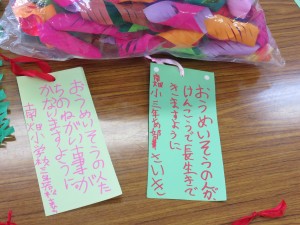 おうめいそうの人が、
けんこうで長生きで
きますように
小三年め部
さいき
おうめいそうの人た
ちのねがい事が
かないますように
小学校